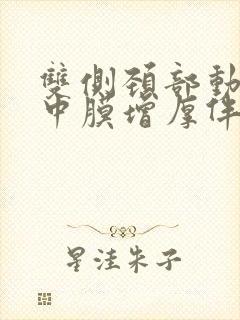 雙側頸部動
中膜增厚伴
星洼朱子